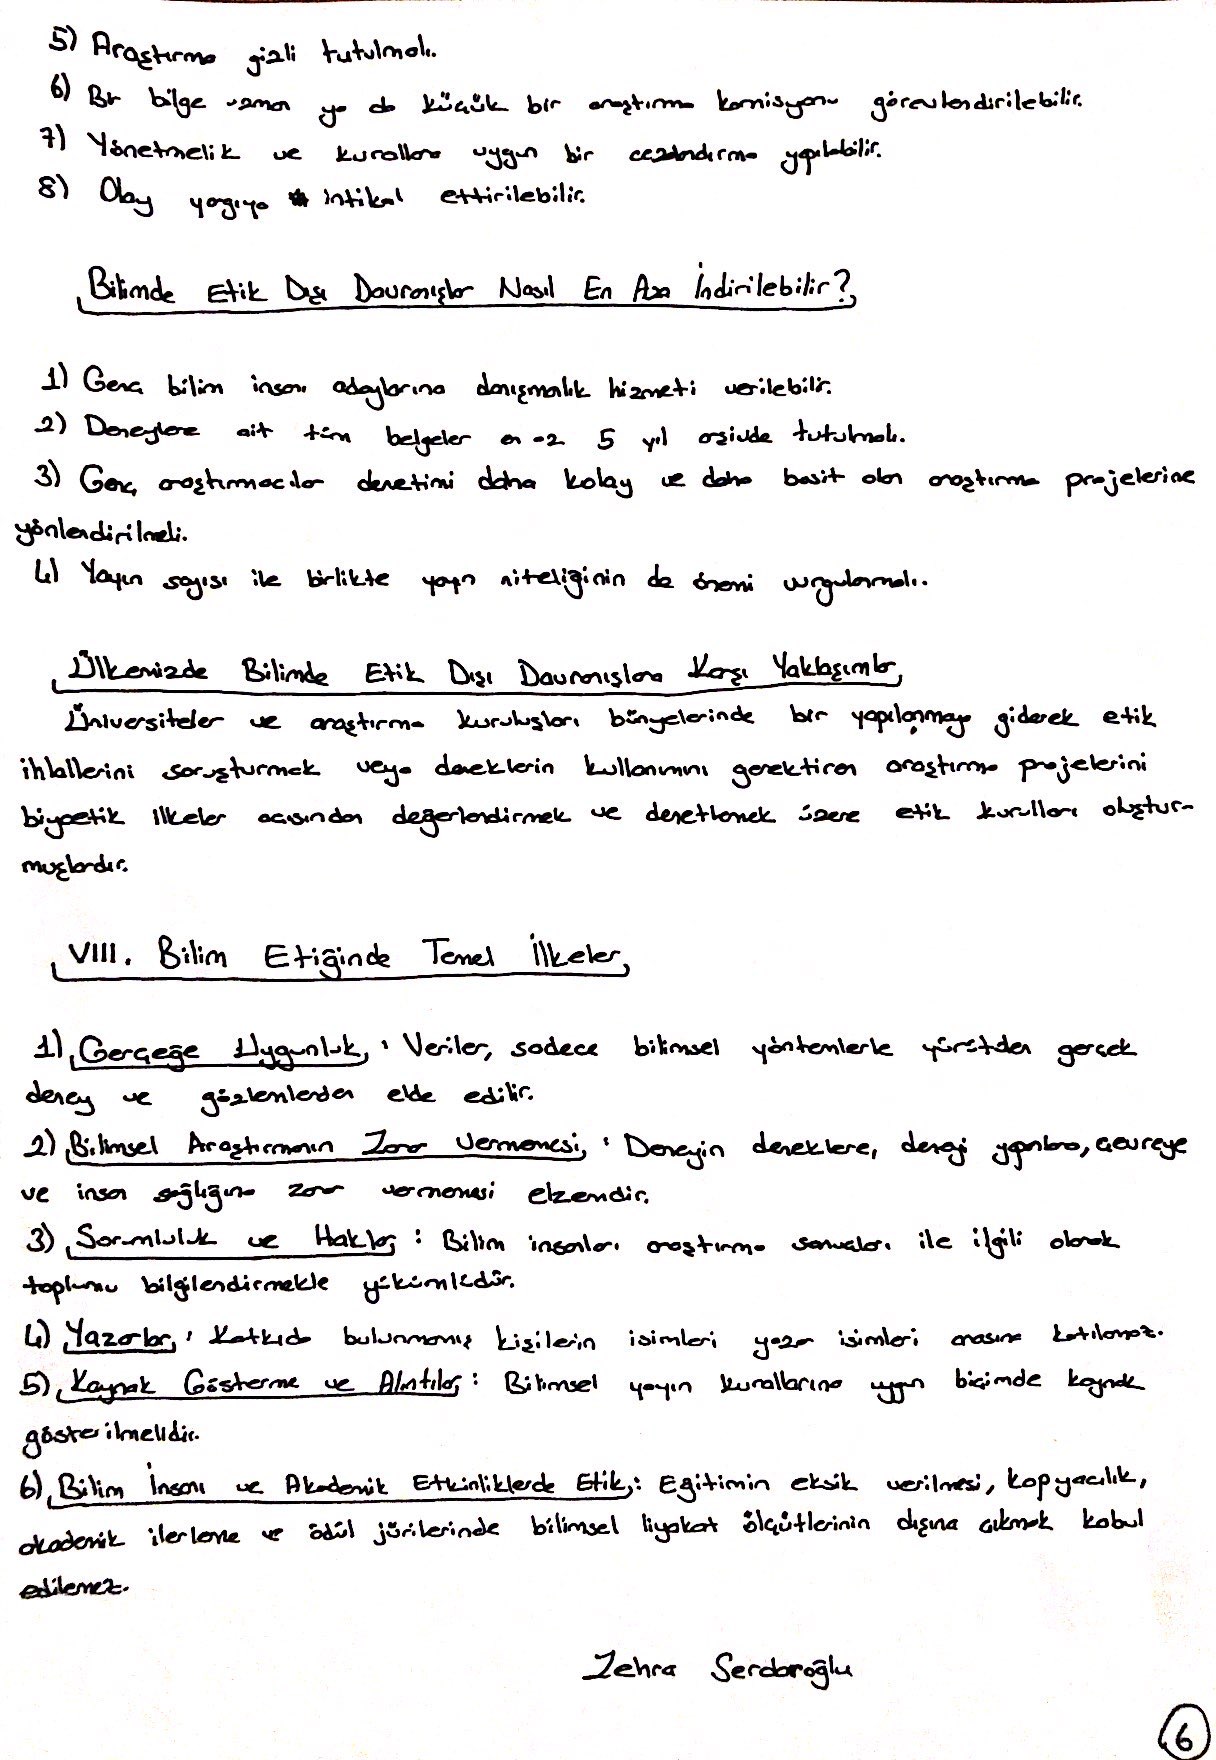 5) Araştırma gizli tutulmalı.
6) Bir bilge uzman ya da küçük bir araştırma komisyonu görevlendirilebilir.
7) Yönetmelik ve kurallara uygun bir cezalandırma yapılabilir.
8) Olay yargıya intikal ettirilebilir.
Bilimde Etik Dışı Davranışlar Nasıl En Aza İndirilebilir?
1) Genç bilim insanı adaylarına danışmanlık hizmeti verilebilir.
2) Deneylere ait tüm belgeler en az 5 yıl arşivde tutulmalı.
3) Genç araştırmacılar denetimi daha kolay ve daha basit olan araştırma projelerine
yönlendirilmeli.
4) Yayın sayısı ile birlikte yayın niteliğinin de önemi vurgulanmalı.
Ülkemizde Bilimde Etik Dışı Davranışlara Karşı Yaklaşımlar
Üniversiteler ve araştırma kuruluşları bünyelerinde bir yapılanmaya giderek etik
ihlallerini soruşturmak veya deneklerin kullanımını gerektiren araştırma projelerini
biyoetik ilkeler açısından değerlendirmek ve denetlemek üzere etik kurulları oluştur-
muşlardır.
VIII. Bilim Etiğinde Temel İlkeler
1) Gerçeğe Uygunluk : Veriler, sadece bilimsel yöntemlerle yürütülen gerçek
deney ve gözlemlerden elde edilir.
2) Bilimsel Araştırmanın Zarar Vermemesi : Deneyin deneklere, deneyi yapanlara, çevreye
ve insan sağlığına zarar vermemesi elzemdir.
3) Sorumluluk ve Haklar : Bilim insanları araştırma sonuçları ile ilgili olarak
toplumu bilgilendirmekle yükümlüdür.
4) Yazarlar : Katkıda bulunmamış kişilerin isimleri yazar isimleri arasına katılamaz.
5) Kaynak Gösterme ve Alıntılar : Bilimsel yayın kurallarına uygun biçimde kaynak
gösterilmelidir.
6) Bilim İnsanı ve Akademik Etkinliklerde Etik : Eğitimin eksik verilmesi, kopyacılık,
akademik ilerleme ve ödül jürilerinde bilimsel liyakat ölçütlerinin dışına çıkmak kabul
edilemez.
Zehra Serdaroğlu
6